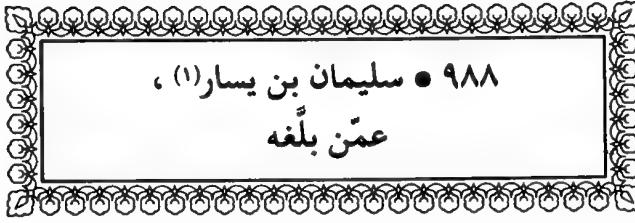 ٩٨٨ • سليمان بن يسار(١) ،
عمّن بلَّغه